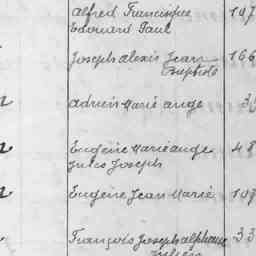 Alfred Francisque 107
Edouard Paul
Joseph Alexis Jean 166
Baptiste
Adrien Marie Ange
Eugène Marie Ange 48
Jules Joseph
Eugène Jean Marie 107
François Joseph Alphonse 33